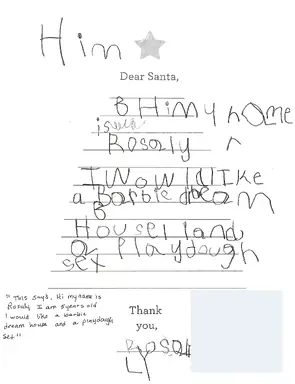 Him
Dear Santa,
B Himy home
is
Rosaly
I WowldlIKe
a Barbie dream
B
Houset land
a Playdough
set
"This says, Hi my name is
Rosaly I am 5 years old
I would like a barbie
dream house and a playdough
set"
Thank
you,
Rosaly